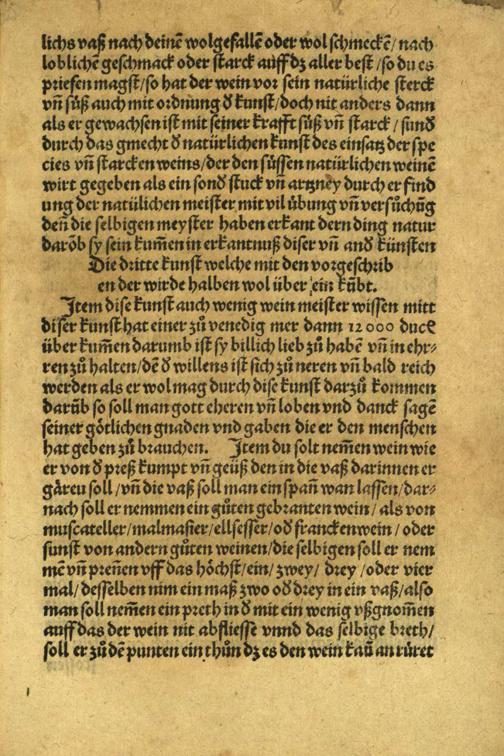 lichs vaß nach deinē wolgefallē oder wol schmeckē/ nach
loblichē geschmack oder starck auff dz aller best/ so du es
priefen magst/ so hat der wein vor sein natürliche sterck
vn̄ süß auch mit ordnūng d̄ kunst/ doch nit anders dann
als er gewachsen ist mit seiner krafft süß vn̄ starck/ sund̄
durch das gmecht d̄ natürlichen kunst des einsatz der spe
cies vn̄ starcken weins/ der den süssen natürlichen weinē
wirt gegeben als ein sond̄ stuck vn̄ artzney durch er find
ung der natülichen meister mit vil übung vn̄ versůchūg
den̄ die selbigen meyster haben erkant dern ding natur
darōb sy sein kum̄en in erkantnuß diser vn̄ and̄ künsten
Die dritte kunst welche mit den vorgeschrib
en der wirde halben wol über ein kūbt.
Item dise kunst auch wenig wein meister wissen mitt
diser kunst hat einer zů venedig mer dann 12000 duc̄
über kum̄en darumb ist sy billich lieb zů habē vn̄ in ehr⸗
ren zů halten/ dē d̄ willens ist sich zů neren vn̄ bald reich
werden als er wol mag durch dise kunst darzů kommen
darūb so soll man gott eheren vn̄ loben vnd danck sagē
seiner götlichen gnaden vnd gaben die er den menschen
hat geben zů brauchen. Item du solt nem̄en wein wie
er von d̄ preß kumpt vn̄ geüß den in die vaß darinnen er
gåren soll/ vn̄ die vaß soll man ein span̄ wan lassen/ dar⸗
nach soll er nemmen ein gůten gebranten wein/ als von
muscateller/ malmasier/ ellsesser/ od̄ franckenwein/ oder
sunst von andern gůten weinen/ die selbigen soll er nem
mē vn̄ pren̄en vff das höchst/ ein/ zwey/ drey/ oder vier
mal/ desselben nim ein maß zwo od̄ drey in ein vaß/ also
man soll nem̄en ein preth in d̄ mit ein wenig vßgnom̄en
auff das der wein nit abfliesse vnnd das selbige breth/
soll er zů dē punten ein thůn dz es den wein kaū an rüret